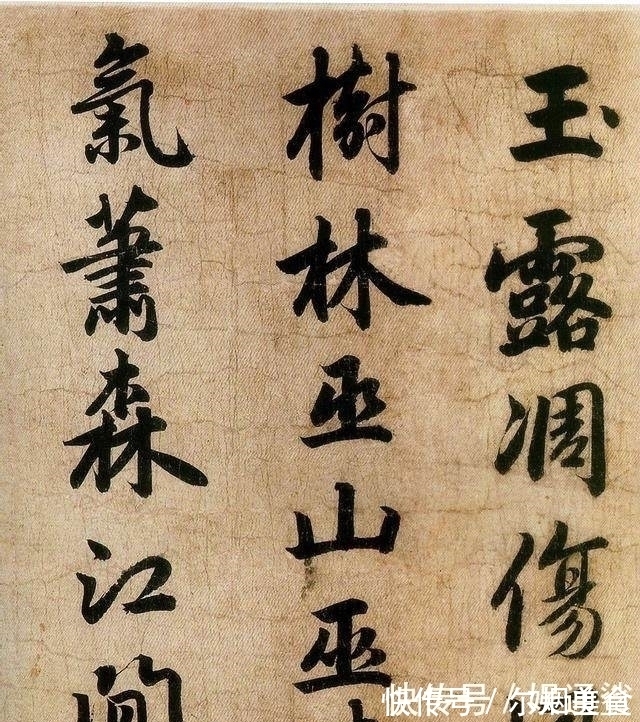 玉露凋傷
樹林巫山巫
氣蕭森江間